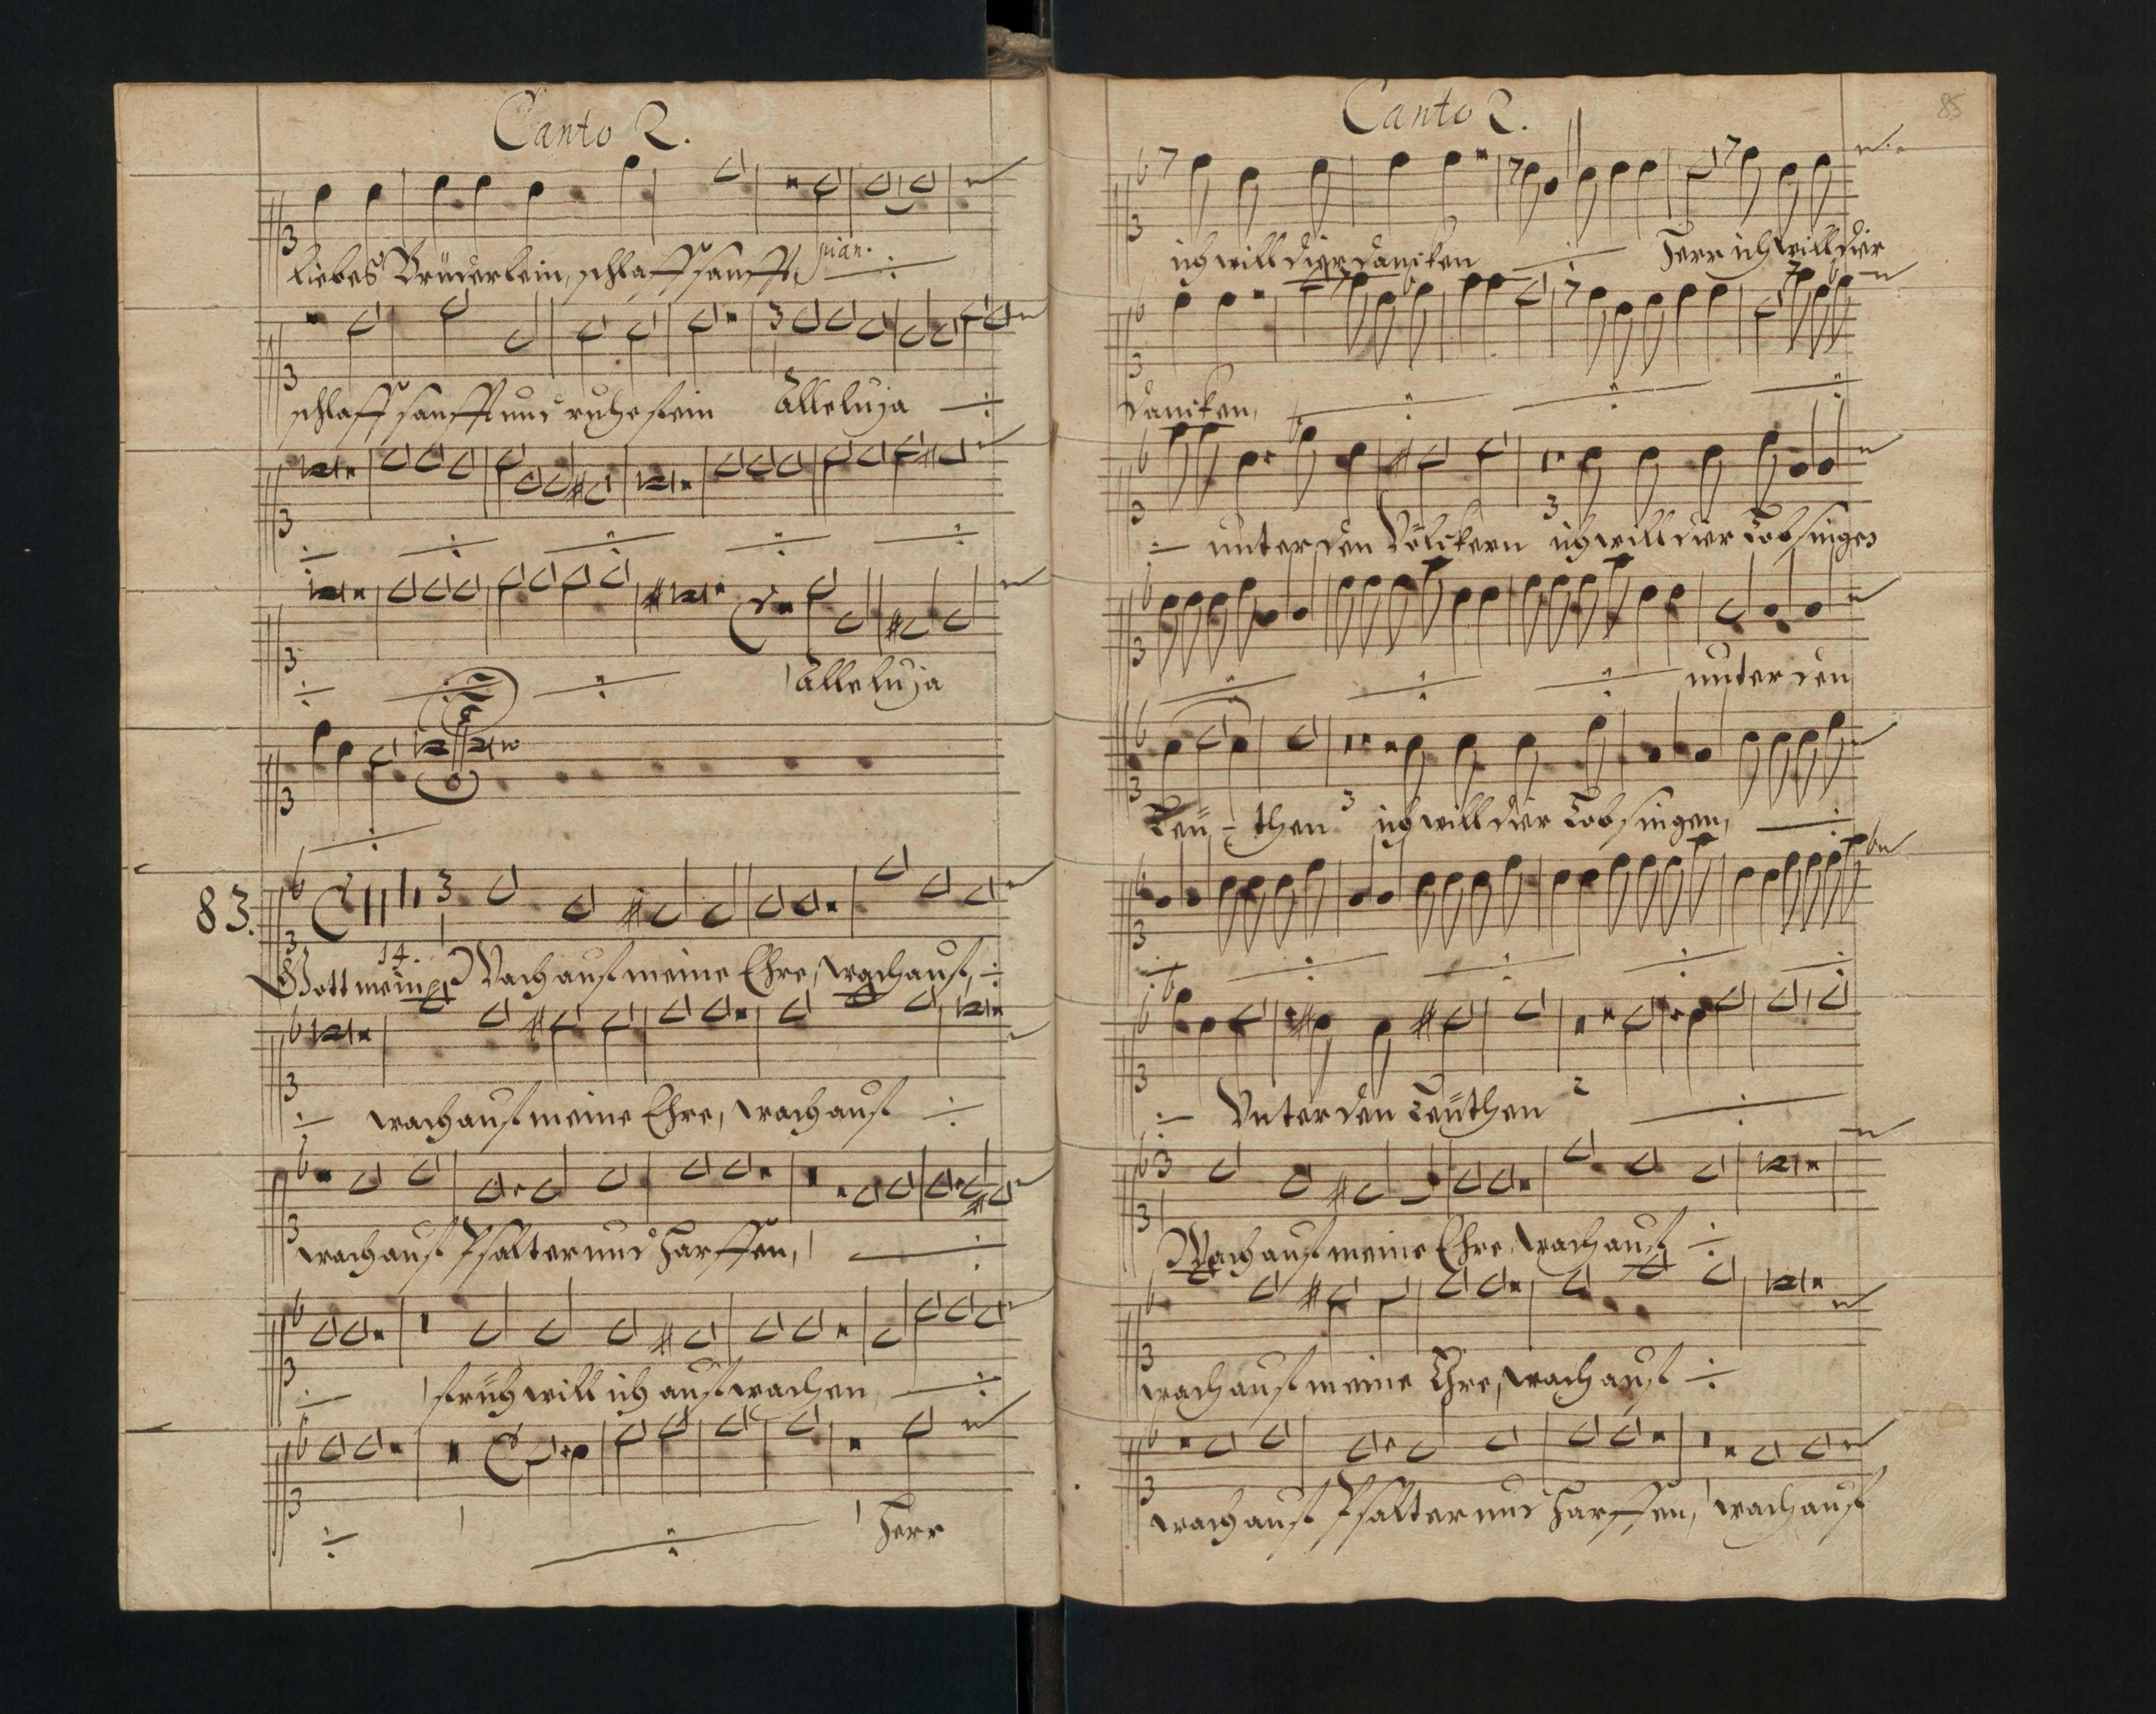 Canto 2.
liebes Brüderlein, schlaff sanfft pian.
schlaff sanfft und ruhe fein Alleluja
Alleluja
83.
14.
Gott mein Wach auf meine Ehre, wach auf,
wach auf meine Ehre, wach auf
wach auf Psalter und Harffen,
früh will ich auf wachen
Herr
Canto 2.
85
ich will dier dancken Herr ich will dier
dancken,
unter den Völckern ich will dier Lobsingen
unter den
Leü-then ich will dier Lobsingen,
Unter den Leüthen
Wach auf meine Ehre, wach auf
wach auf meine Ehre, wach auf
wach auf Psalter und Harffen, wach auf